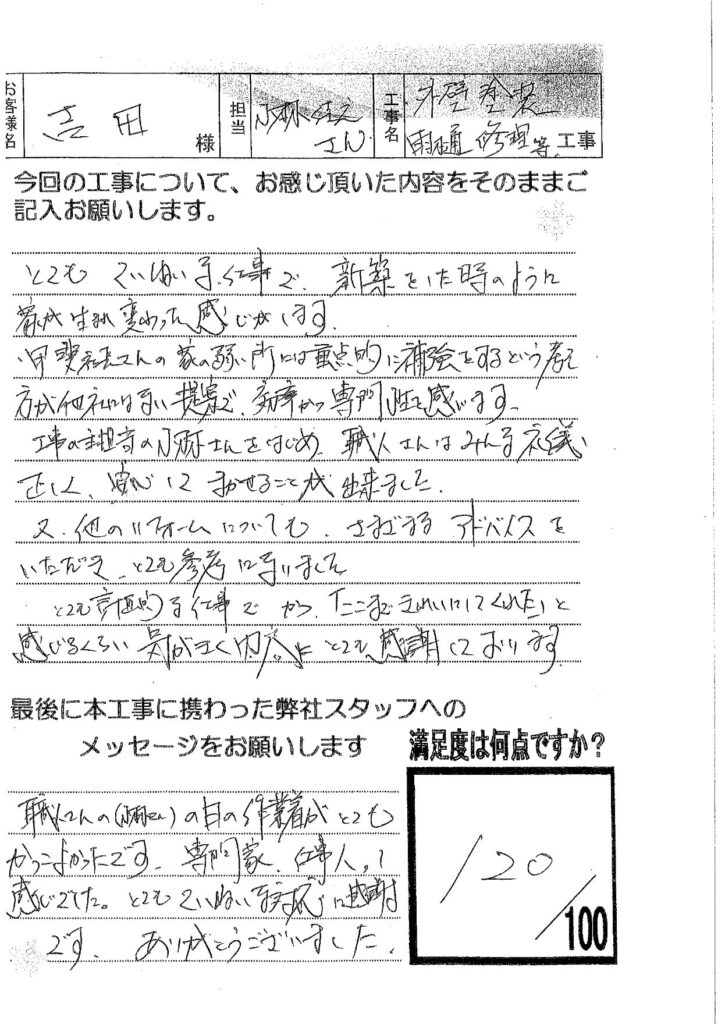 お客様名 吉田 様 担当 小林 さん 工事名 外壁塗装
雨樋修理等 工事
今回の工事について、お感じ頂いた内容をそのままご
記入お願いします。
とても ていねいな仕事で、新築をした時のように
家が生まれ変わった感じがします。
甲斐社長さんの家の弱い所には重点的に補強をするという考え
方が他社にはない提案で、効率かつ専門性を感じます。
工事の主担当の小林さんをはじめ、職人さんはみんな礼儀
正しく、安心してまかせることが出来ました。
又、他のリフォームについても、さまざまなアドバイスを
いただき、とても参考になりました
とても計画的な仕事でかつ、「ここまできれいにしてくれた」と
感じるくらい 気がきく内容に とても感謝しております
最後に本工事に携わった弊社スタッフへの
メッセージをお願いします
満足度は何点ですか？
職人さんの(小林さん)の白の作業着がとても
かっこよかったです。専門家、仕事人。
感じでした。とてもていねいな対応に感謝
です。ありがとうございました。
120/100